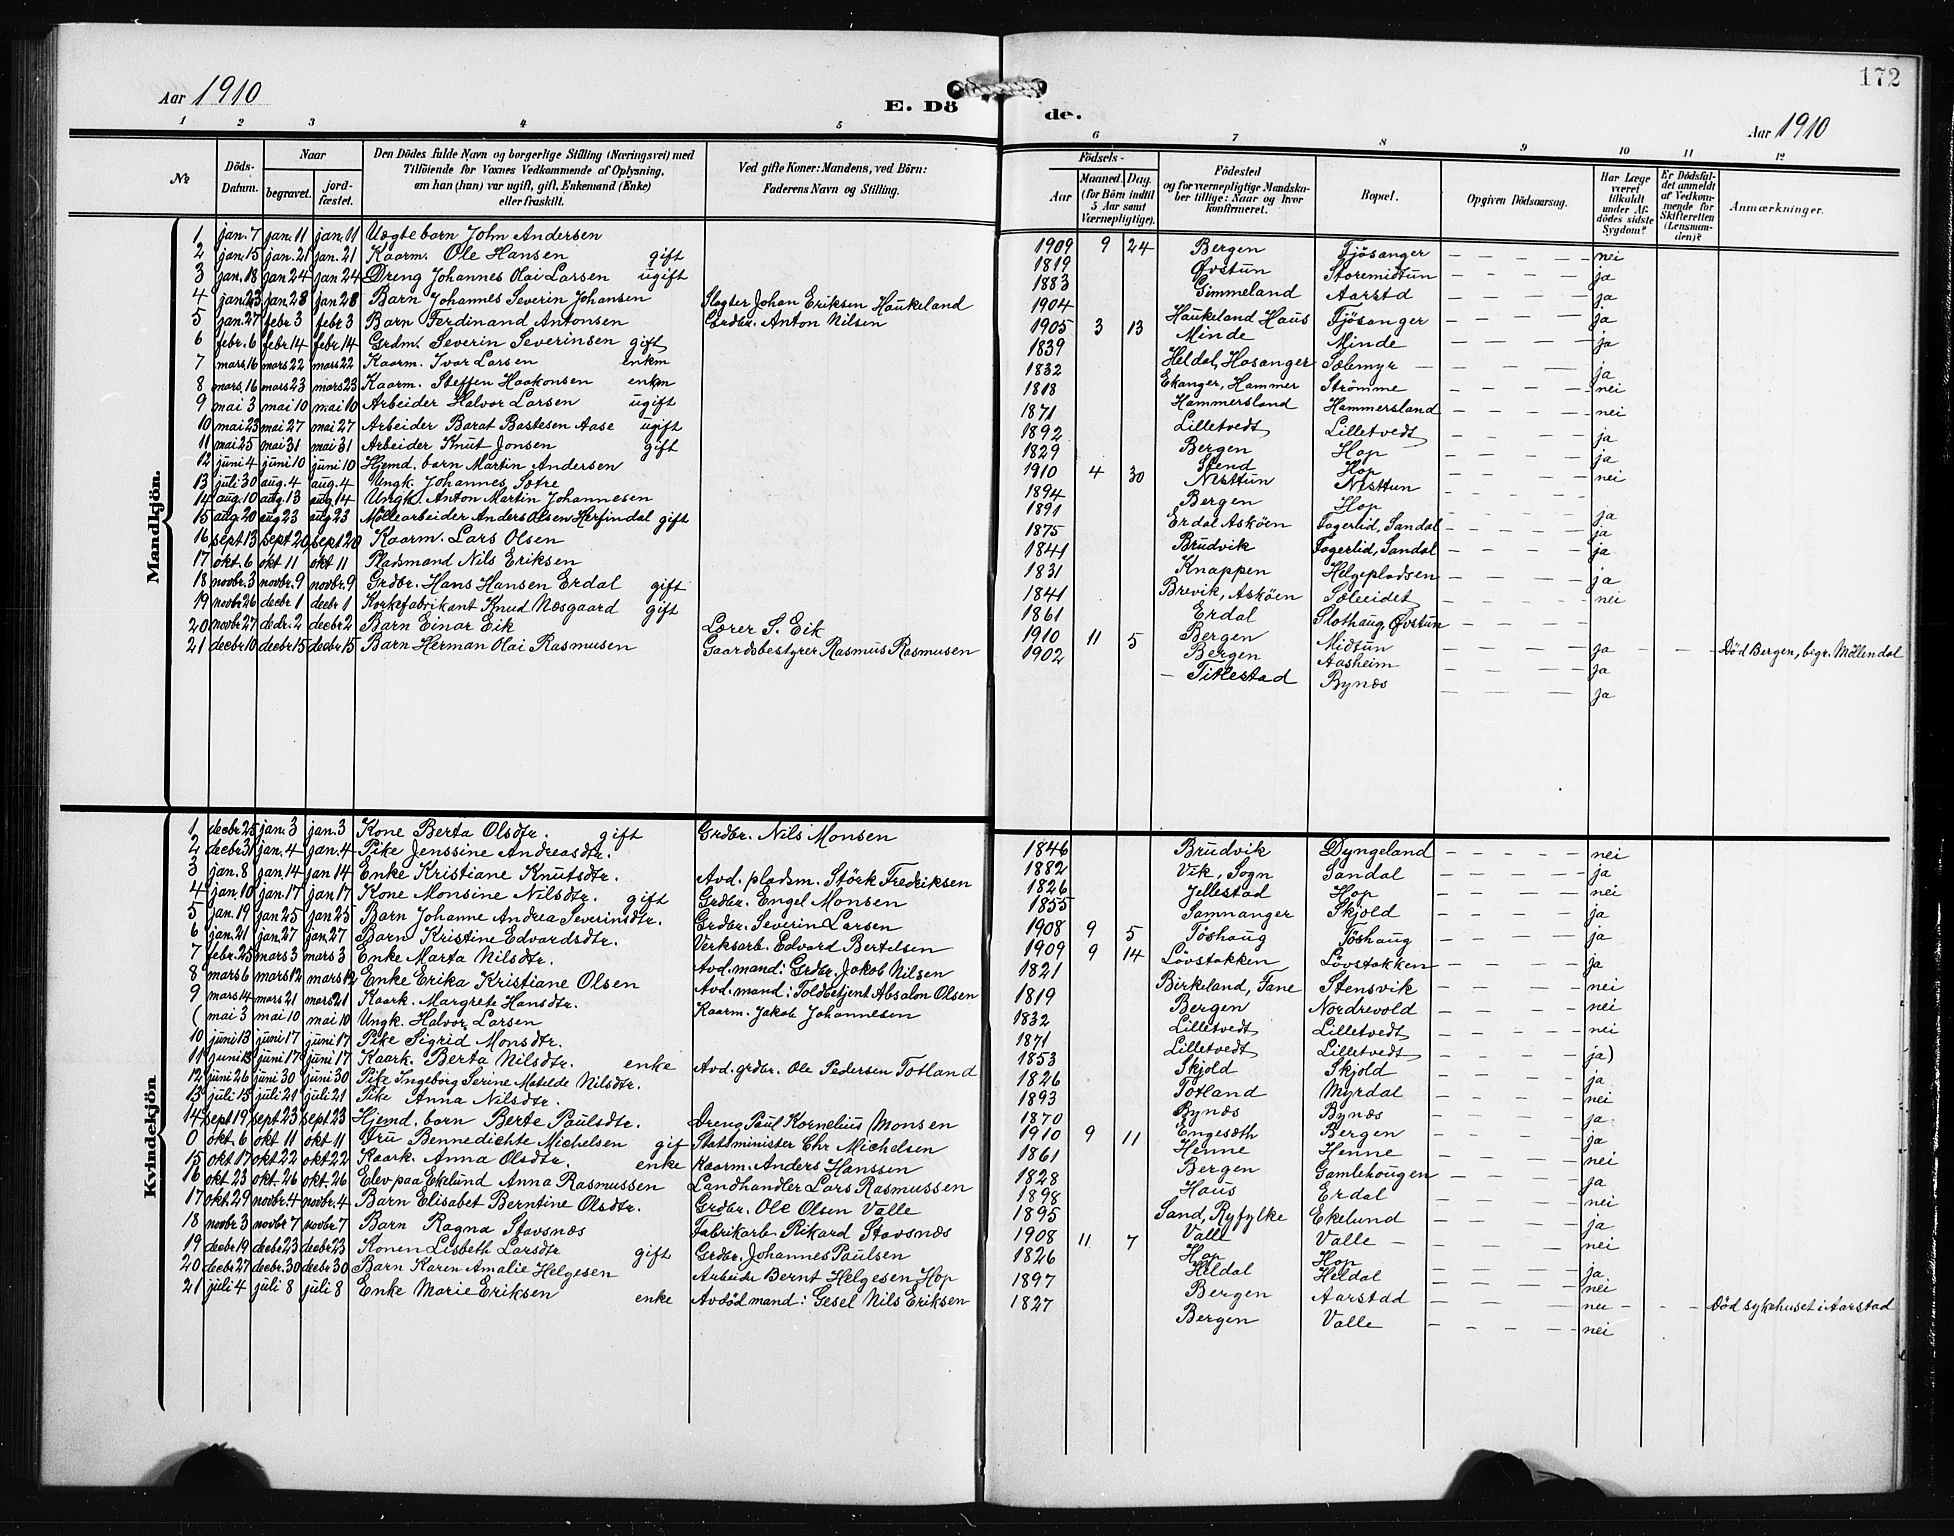 172
Aar 1910
E. Dö
de.
Aar 1910
1 2 3 4 5
6 7 8 9 10 11 12
No
Döds-Datum.
Naar
begravet.
jord-fæstet.
Den Dödes fulde Navn og borgerlige Stilling (Næringsvei) med
Tilföiende for Voxnes Vedkommende af Oplysning,
om han (hun) var ugift, gift, Enkemand (Enke)
eller fraskilt.
Ved gifte Koner: Mandens, ved Börn:
Faderens Navn og Stilling.
Födsels-
Aar
Maaned. Dag.
(for Börn indtil
5 Aar samt
Værnepligtige).
Födested
og for værnepligtige Mandska-
ber tillige: Naar og hvor
konfirmeret.
Bopæl.
Opgiven Dödsaarsag.
Har Læge
været
tilkaldt
under Af-
dödes sidste
Sygdom?
Er Dödsfal-
det anmeldt
af Vedkom-
mende for
Skifteretten
(Lensman-
den)?
Anmærkninger.
Mandkjön.
1 jan. 7 jan. 11 jan. 11 Uægte barn John Andersen
2 jan. 15 jan. 21 jan. 21 Kaarm. Ole Hansen gift
3 jan. 18 jan 24 jan 24 Dreng Johannes Olai Larsen ugift
4 jan. 23 jan. 28 jan 28 Barn Johannes Severin Johansen Slagter Johan Eriksen Haukeland
5 jan. 27 febr 3 febr 3 Barn Ferdinand Antonsen Grdbr. Anton Nilsen
6 febr. 6 febr. 14 febr. 14 Grdm. Severin Severinsen gift
7 mars. 16 mars 22 mars 22 Kaarm. Ivar Larsen enkm
8 mars. 16 mars 23 mars 23 Kaarm. Steffen Haakonsen enkm
9 mai 3 mai 10 mai 10 Arbeider Halvor Larsen ugift
10 mai 23 mai 27 mai 27 Arbeider Barat Bastesen Aase ugift
11 mai 25 mai 31 mai 31 Arbeider Knut Jonsen gift
12 juni 4 juni 10 juni 10 Hjemd. barn Martin Andersen
13 juli 30 aug. 4 aug. 4 Ungk. Johannes Sætre
14 aug. 10 aug. 13 aug. 14 Ungk. Anton Martin Johannesen
15 aug 20 aug 23 aug 23 Möllearbeider Anders Olsen Herfindal gift
16 sept 13 sept 20 sept 20 Kaarm. Lars Olsen
17 okt. 6 okt 11 okt 11 Pladsmand Nils Eriksen
18 novbr. 3 novbr. 9 novbr. 9 Grdbr. Hans Hansen Erdal gift
19 novbr 26 decbr 1 decbr 1 Korkefabrikant Knud Næsgaard gift
20 novbr 27 decbr. 2 decbr 2 Barn Einar Eik Lærer S. Eik
21 decbr 10 decbr 15 decbr 15 Barn Herman Olai Rasmusen Gaardsbestyrer Rasmus Rasmusen
1909 9 24 Bergen Fjösanger nei
1819 Øvstun Storemidtun ja
1883 Gimmeland Aarstad ja
1904 Haukeland Haus Fjösanger ja
1905 3 13 Minde Minde ja
1839 Heldal, Hosanger Sælemyr ja
1832 Ekanger, Hammer Strömme nei
1818 Hammersland Hammersland nei
1871 Lilletvedt Lilletvedt ja
1892 Bergen Hop ja
1829 Stend Hop nei
1910 4 30 Nesttun Nesttun
1894 Bergen Hop ja
1891 Erdal Asköen Fagerlid, Sandal ja
1875 Brudvik Fagerlid, Sandal ja
1841 Knappen Helgepladsen ja
1831 Brevik, Asköen Sæleidet nei
1841 Erdal Slothaug, Øvstun
1861 Bergen Midtun ja Död Bergen, begr. Möllendal
1910 11 5 Bergen Aasheim ja
1902 Titlestad Bynæs ja
Kvindekjön
1 decbr 25 jan. 3 jan. 3 Kone Berta Olsdtr. gift Grdbr. Nils Monsen
2 decbr 31 jan. 4 jan. 4 Pike Jenssine Andreasdtr.
3 jan. 8 jan. 14 jan 14 Enke Kristiane Knutsdtr. Avd. pladsm. Störk Fredriksen
4 jan. 10 jan. 17 jan. 17 Kone Monsine Nilsdtr. gift Grdbr. Engel Monsen
5 jan. 19 jan 25 jan 25 Barn Johanne Andrea Severinsdtr. Grdbr. Severin Larsen
6 jan. 21 jan. 27 jan. 27 Barn Kristine Edvardsdtr. Verksarb. Edvard Bertelsen
7 febr. 25 mars 3 mars 3 Enke Marta Nilsdtr. Avd. mand: Grdbr. Jakob Nilsen
8 mars 6 mars 12 mars 12 Enke Erika Kristiane Olsen Avd. mand: Toldbetjent Absalon Olsen
9 mars 14 mars 21 mars 21 Kaark. Margrete Hansdtr. Kaarm. Jakob Johannesen
( mai 3 mai 10 mai 10 Ungk. Halvor Larsen
10 juni 13 juni 17 juni 17 Pike Sigrid Monsdtr.
11 juni 13 juni 17 juni 17 Kaark. Berta Nilsdtr. enke Avd. grdbr. Ole Pedersen Totland
12 juni 26 juni 30 juni 30 Pike Ingeborg Serine Matilde Nilsdtr.
13 juli 15 juli 21 juli 21 Pike Anna Nilsdtr.
14 sept 19 sept 23 sept 23 Hjemd. born Berte Paulsdtr. Dreng Paul Kornelius Monsen
0 okt. 6 okt 11 okt 11 Fru Bennedichte Michelsen gif Statsminister Chr Michelsen
15 okt 17 okt 22 okt 22 Kaark. Anna Olsdtr. enke Kaarm. Anders Hanssen
16 okt 23 okt. 26 okt. 26 Elev paa Ekelund Anna Rasmussen Landhandler Lars Rasmussen
17 okt 29 novbr. 4 novbr. 4 Barn Elisabet Berntine Olsdtr. Grdbr. Ole Olsen Valle
18 novbr 3 novbr 7 novbr 7 Barn Ragna Stavsnæs Fabrikarb. Rikard Stavsnæs
19 decbr 19 decbr 23 decbr 23 Konen Lisbeth Larsdtr gift Grdbr. Johannes Paulsen
20 decbr 27 decbr. 30 decbr 30 Barn Karen Amalie Helgesen Arbeider Bernt Helgesen Hop
21 juli 4 juli 8 juli 8 Enke Marie Eriksen enke Avdöd mand: Gesel Nils Eriksen
1846 Brudvik Dyngeland nei
1882 Vik, Sogn Sandal ja
1826 Jellestad Hop nei
1855 Samnanger Skjold ja
1908 9 5 Töshaug Töshaug ja
1909 9 14 Lövstakken Lövstakken ja
1821 Birkeland, Fane Stensvik nei
1819 Bergen Nordrevold nei
1832 Lilletvedt Lilletvedt nei
1871 Lilletvedt Lilletvedt ja)
1853 Skjold Skjold ja
1826 Totland Myrdal nei
1893 Bynæs Bynæs ja
1870 Engesæth Bergen ja
1910 9 11 Henne Henne nei
1861 Bergen Gamlehougen ja
1828 Haus Erdal nei
1898 Sand, Ryfylke Ekelund ja
1895 Valle Valle nei
1908 11 7 Hop Hop ja
1826 Heldal Heldal nei
1897 Bergen Aarstad nei Död sykehuset i Aarstad
1827 Bergen Valle nei